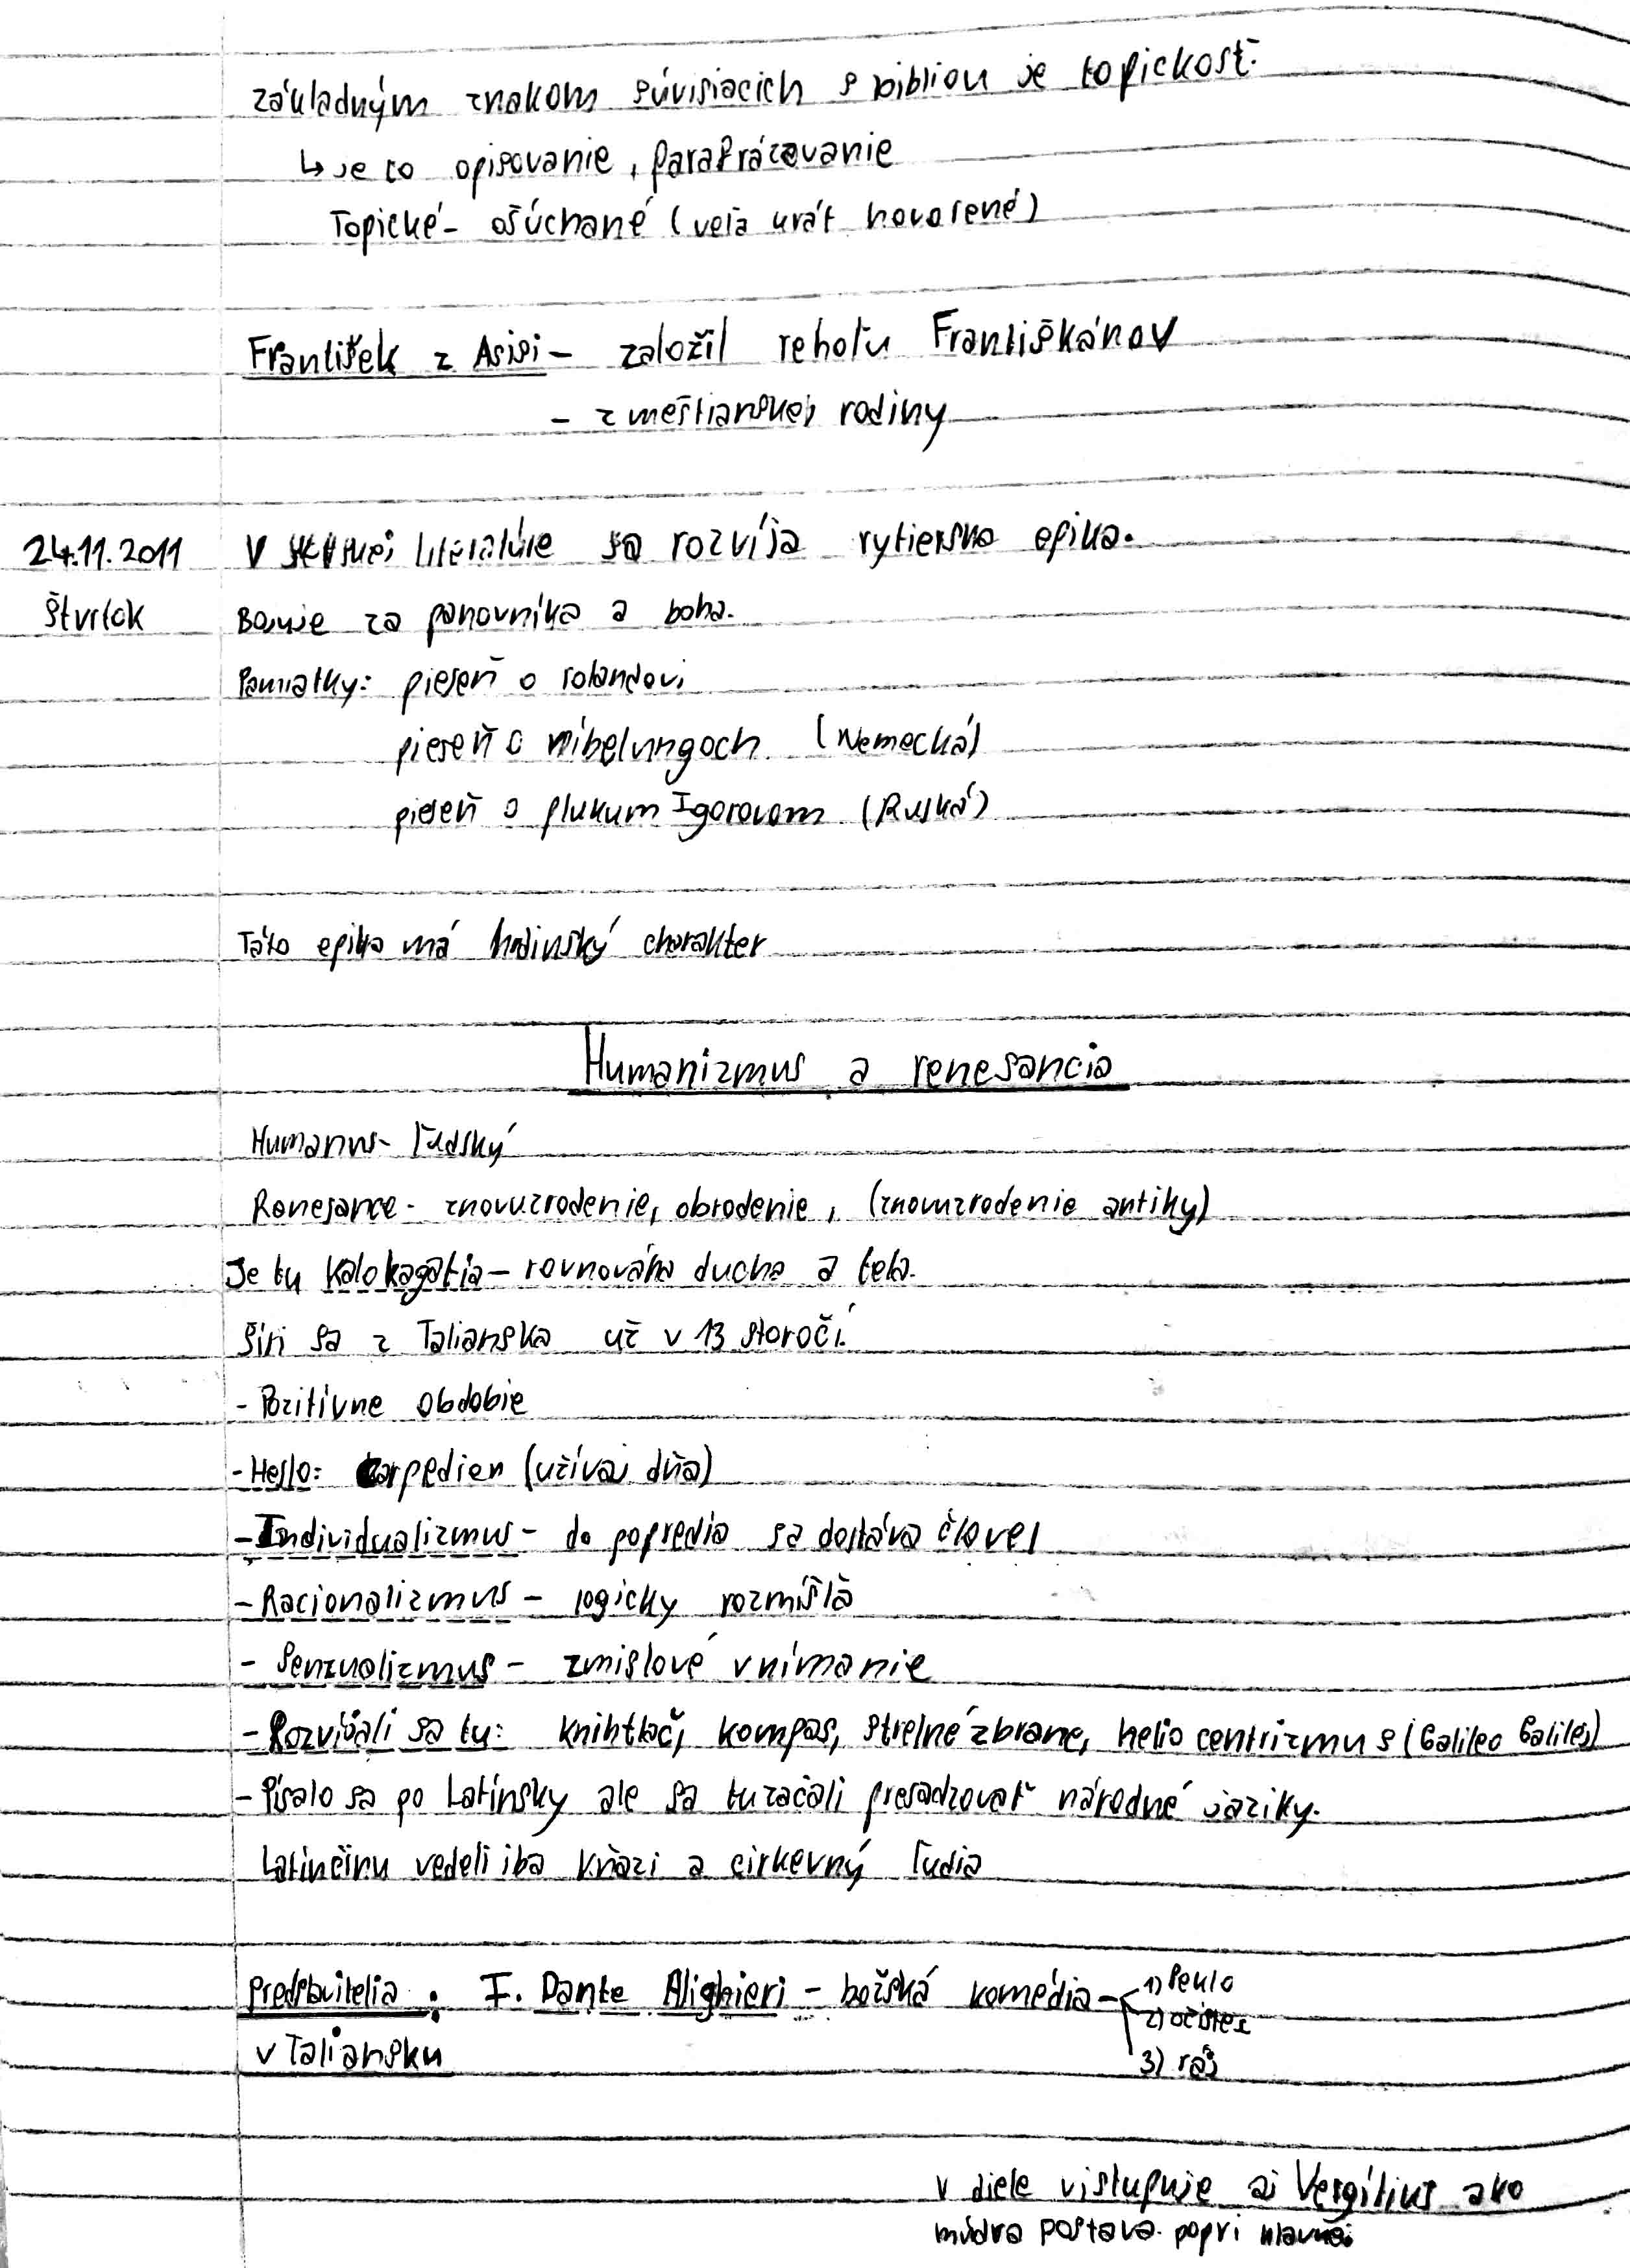 základným znakom súvisiacich s bibliou je topickosť.
↳ je to opisovanie, parafrázovanie
Topické - ošúchané (veľa krát hovorené)
František z Asisi - založil rehoľu Františkánov
- z meštianskej rodiny
24.11.2011 V svetskej literatúre sa rozvíja rytierska epika.
štvrtok Bojuje za panovníka a boha.
Pamiatky: pieseň o rolandovi
pieseň o nibelungoch (Nemecká)
pieseň o plukum Igorovom (Ruská)
Táto epika má hrdinský charakter
Humanizmus a renesancia
Humanus - ľudský
Renesance - znovuzrodenie, obrodenie, (znovuzrodenie antiky)
Je tu kalokagatia - rovnováha ducha a tela.
Šíri sa z Talianska už v 13 storočí.
- Pozitívne obdobie
- Heslo: carpedien (užívaj dňa)
- Individualizmus - do popredia sa dostáva človek
- Racionalizmus - logicky rozmíšľa
- Senzualizmus - zmislové vnímanie
- Rozvíjali sa tu: kníhtlač, kompas, strelné zbrane, helio centrizmus (Galileo Galilei)
- Písalo sa po Latinsky ale sa tu začali presadzovať národné jaziky.
Latinčinu vedeli iba kňazi a cirkevný ľudia
predstavitelia : I. Dante Alighieri - božská komédia - 1) Peklo
2) očistec
v Taliansku
3) raj
v diele vistupuje aj Vergílius ako
múdra postava popri hlavnej